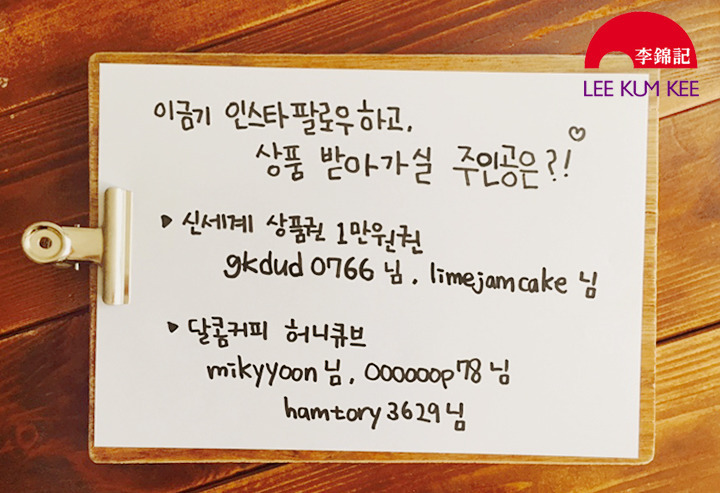 李錦記
LEE KUM KEE
이금기 인스타팔로우하고,
상품 받아가실 주인공은?!
▶ 신세계 상품권 1만원권
gkdud0766님, limejamcake 님
▶ 달콤커피 허니큐브
mikyyoon님, ooooooop78님
hamtory3629님